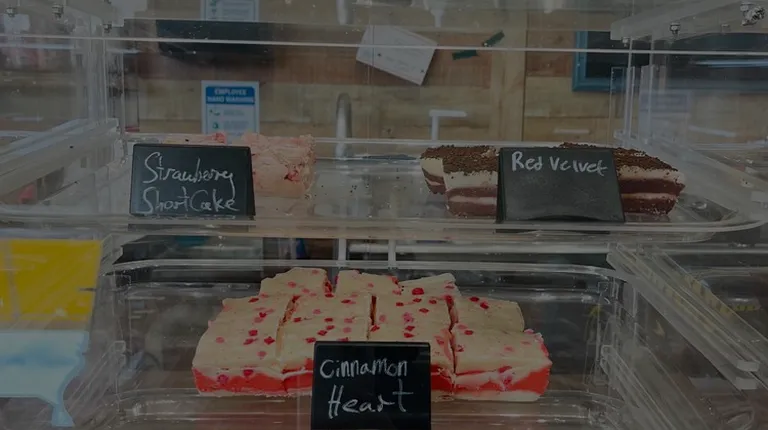 EMPLOYEE
HAND WASHING
Strawberry
ShortCake
Red Velvet
Cinnamon
Heart